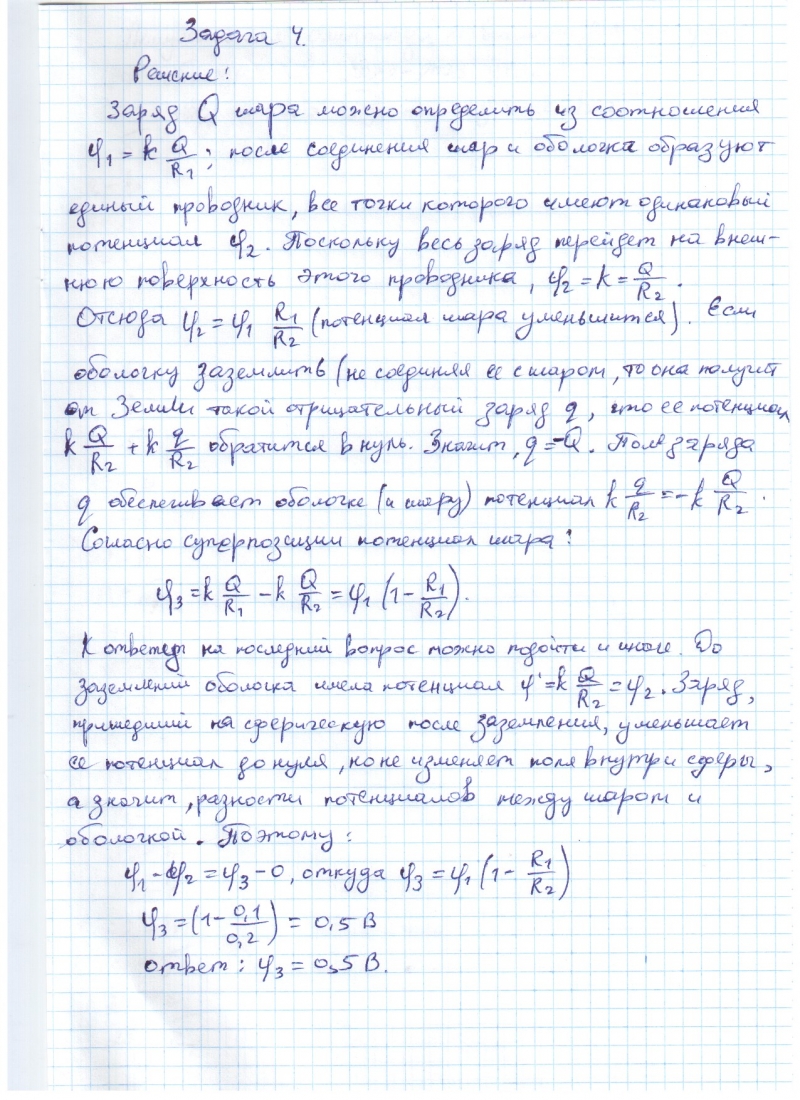 Задача 4.
Решение:
Заряд Q шара можно определить из соотношения
φ₁ = k Q/R₁; после соединения шар и оболочка образуют
единый проводник, все точки которого имеют одинаковый
потенциал φ₂. Поскольку весь заряд перейдет на внеш-
нюю поверхность этого проводника, φ₂ = k = Q/R₂.
Отсюда φ₂ = φ₁ R₁/R₂ (потенциал шара уменьшится). Если
оболочку заземлить (не соединяя ее с шаром, то она получит
от Земли такой отрицательный заряд q, что ее потенциал
k Q/R₂ + k q/R₂ обратится в нуль. Значит, q = -Q. Поле заряда
q обеспечивает оболочке (и шару) потенциал k q/R₂ = -k Q/R₂.
Согласно суперпозиции потенциал шара:
φ₃ = k Q/R₁ - k Q/R₂ = φ₁ (1 - R₁/R₂).
К ответу на последний вопрос можно подойти и иначе. До
заземления оболочка имела потенциал φ' = k Q/R₂ = φ₂. Заряд,
пришедший на сферическую после заземления, уменьшает
ее потенциал до нуля, но не изменяет поля внутри сферы,
а значит, разности потенциалов между шаром и
оболочкой. Поэтому:
φ₁ - φ₂ = φ₃ - 0, откуда φ₃ = φ₁ (1 - R₁/R₂)
φ₃ = (1 - 0,1/0,2) = 0,5 В
ответ: φ₃ = 0,5 В.